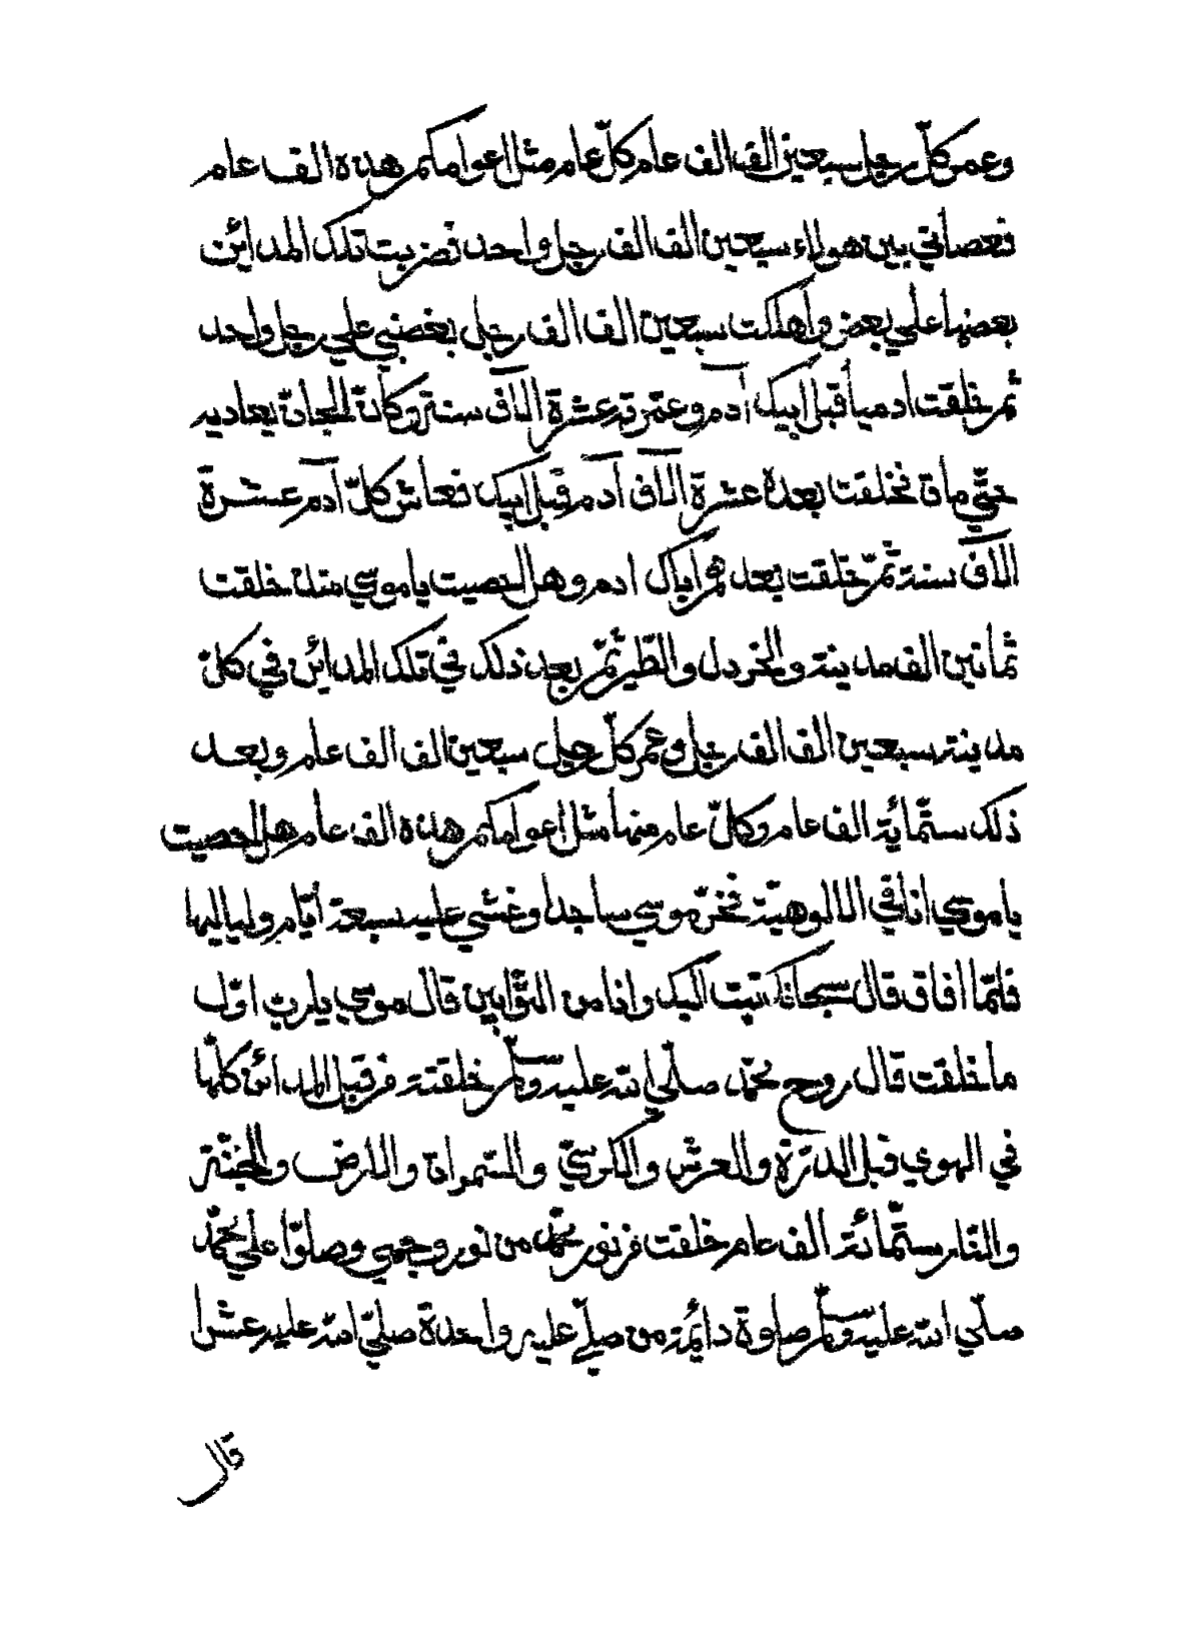 وعمر كلّ رجل سبعين الف الف عام كلّ عام مثل اعوامكم هذه الف عام
فعصاني بين هولاء سبعين الف الف رجل واحد فضربت تلك المدائن
بعضها علي بعض واهلكت سبعين الف الف رجل بغضبي علي رجل واحد
ثم خلقت ادميا قبل ابيك آدم وعمّرته عشرة الآف سنة وكان الجان يعاديه
حتّي مات فخلقت بعده عشرة الآف آدم قبل ابيك فعاش كلّ آدم عشرة
الآف سنة ثمّ خلقت بعد هم اباك ادم وهل احصيت ياموسي منذ خلقت
ثمانين الف مدينة والخردل والطّير ثمّ بعد ذلك في تلك المدائن في كلّ
مدينة سبعين الف الف رجل وعمر كلّ رجل سبعين الف الف عام وبعد
ذلك ستّمائة الف عام وكلّ عام منها مثل اعوامكم هذه الف عام هل احصيت
ياموسي انا في الالوهيّة فخرّ موسي ساجدا وغشي عليه سبعة ايّام ولياليها
فلمّا افاق قال سبحانك تبت اليك وانا من التوّابين قال موسي يارب اوّل
ما خلقت قال روح محمّد صلّي الله عليه وسلّم خلقته قبل المدائن كلّها
في الهوي قبل الدرّة والعرش والكرسيّ والسّموات والارض والجنّة
والنّار بستّمائة الف عام خلقت نور محمّد من نور وجهي وصلوا علي محمّد
صلّي الله عليه وسلّم صلوة دائمة من صلّي عليه واحدة صلّي الله عليه عشرا
قال